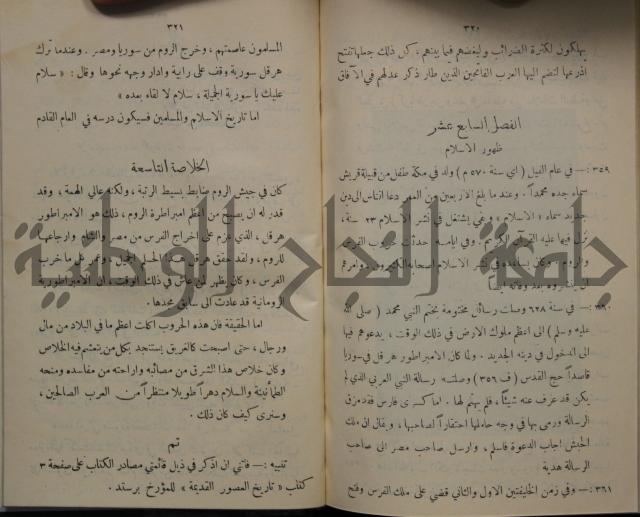 ٣٢٠
يهلكون لكثرة الضرائب ولبغضهم فيما بينهم، كل ذلك جعلها تفتح
اذرعها لتضم اليها العرب الفاتحين الذين طار ذكر عدلهم في الآفاق
الفصل السابع عشر
ظهور الاسلام
٣٥٩ :— في عام الفيل ( اي سنة ٥٧٠ م ) ولد في مكة طفل من قبيلة قريش
سماه جده محمداً . وعندما بلغ الاربعين من العمر دعا الناس الى دين
جديد سماه « الاسلام » وبقي يشتغل في نشر الاسلام ٢٣ سنة ،
نزل فيها عليه القرآن الكريم . وفي ايامه حدثت حروب الفرس
والروم . وكان يساعده في نشر الاسلام اصحابه الكثيرون وامرهم
ان ينشروه بعد وفاته
٣٦٠ :— في سنة ٦٢٨ وصلت رسائل مختومة بختم النبي محمد ( صلى الله
عليه وسلم ) الى اعظم ملوك الارض في ذلك الوقت ، يدعوهم فيها
الى الدخول في دينه الجديد . ولما كان الامبراطور هرقل في سوريا
قاصداً حج القدس ( ف ٣٥٦ ) وصلته رسالة النبي العربي الذي لم
يكن قد عرف عنه شيئاً ، فلم يهتم لها . اما كسرى فارس فقد مزق
الرسالة ورمى بها في وجه حاملها احتقاراً لصاحبها ، ويقال ان ملك
الحبش اجاب الدعوة فاسلم ، وارسل صاحب مصر الى صاحب
الرسالة هدية
٣٦١ :— وفي زمن الخليفتين الاول والثاني قضي على ملك الفرس وفتح
٣٢١
المسلمون عاصمتهم ، وخرج الروم من سوريا ومصر . وعندما ترك
هرقل سورية وقف على رابية وادار وجهه نحوها وقال : « سلام
عليك يا سورية الجميلة ، سلام لا لقاء بعده »
اما تاريخ الاسلام والمسلمين فسيكون درسه في العام القادم
الخلاصة التاسعة
كان في جيش الروم ضابط بسيط الرتبة ، ولكنه عالي الهمة ، وقد
قدر له ان يصبح من اعظم امبراطرة الروم ، ذلك هو الامبراطور
هرقل ، الذي عزم على اخراج الفرس من مصر والشام وارجاعها
للروم ، ولقد حقق هرقل هذا الحلم الجميل ، وعمر على ما خرب
الفرس ، وكان يظهر لمن عاش في ذلك الوقت ، ان الامبراطورية
الرومانية قد عادت الى سابق مجدها .
اما الحقيقة فان هذه الحروب اكلت اعظم ما في البلاد من مال
ورجال ، حتى اصبحت كالغريق يستنجد بكل من يتعشم فيه الخلاص
وكان خلاص هذا الشرق من مصائبه واراحته من مفاسده ومنحه
الطمأنينة والسلام دهراً طويلا منتظراً من العرب الصالحين ،
وسنرى كيف كان ذلك .
تم
تنبيه :— فاتني ان اذكر في ذيل قائمتي مصادر الكتاب على صفحة ٣
كتاب « تاريخ العصور القديمة » للمؤرخ برستد .
جامعة النجاح الوطنية